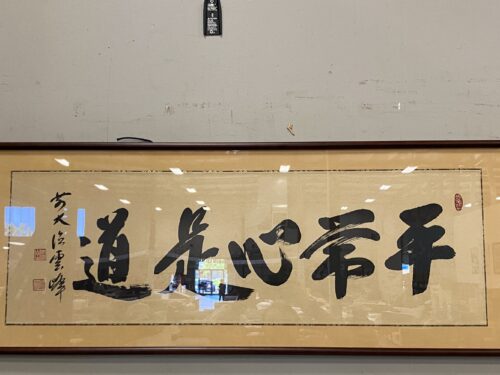 平常心是道
前大徳雲峰